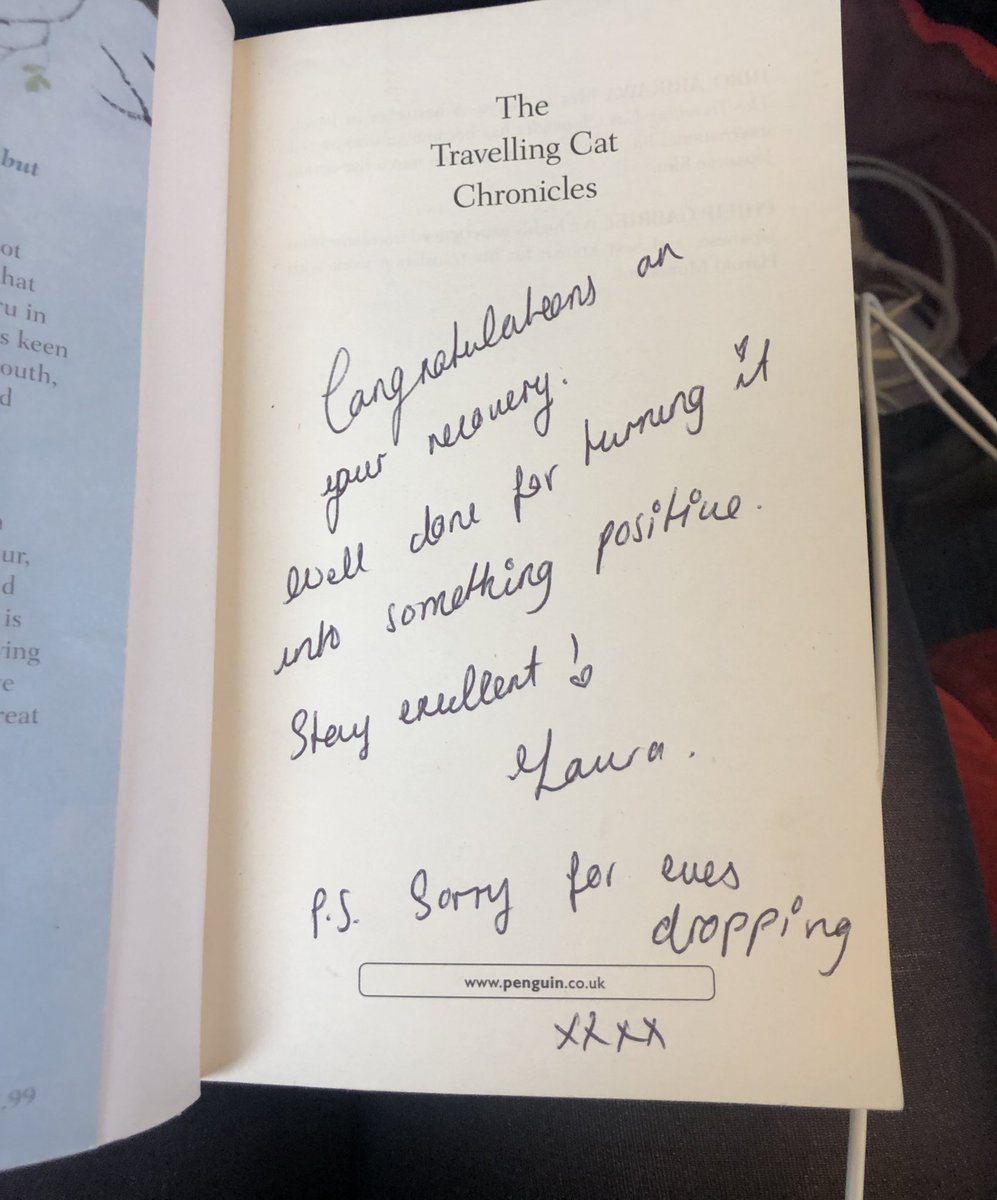 but
ot
hat
ru in
s keen
outh,
d
ur,
d
is
ing
e
reat
.99
The
Travelling Cat
Chronicles
Congratulations on
your recovery.
Well done for turning it
into something positive.
Stay excellent!
Laura.
P.S. Sorry for eves
dropping
www.penguin.co.uk
xxxx